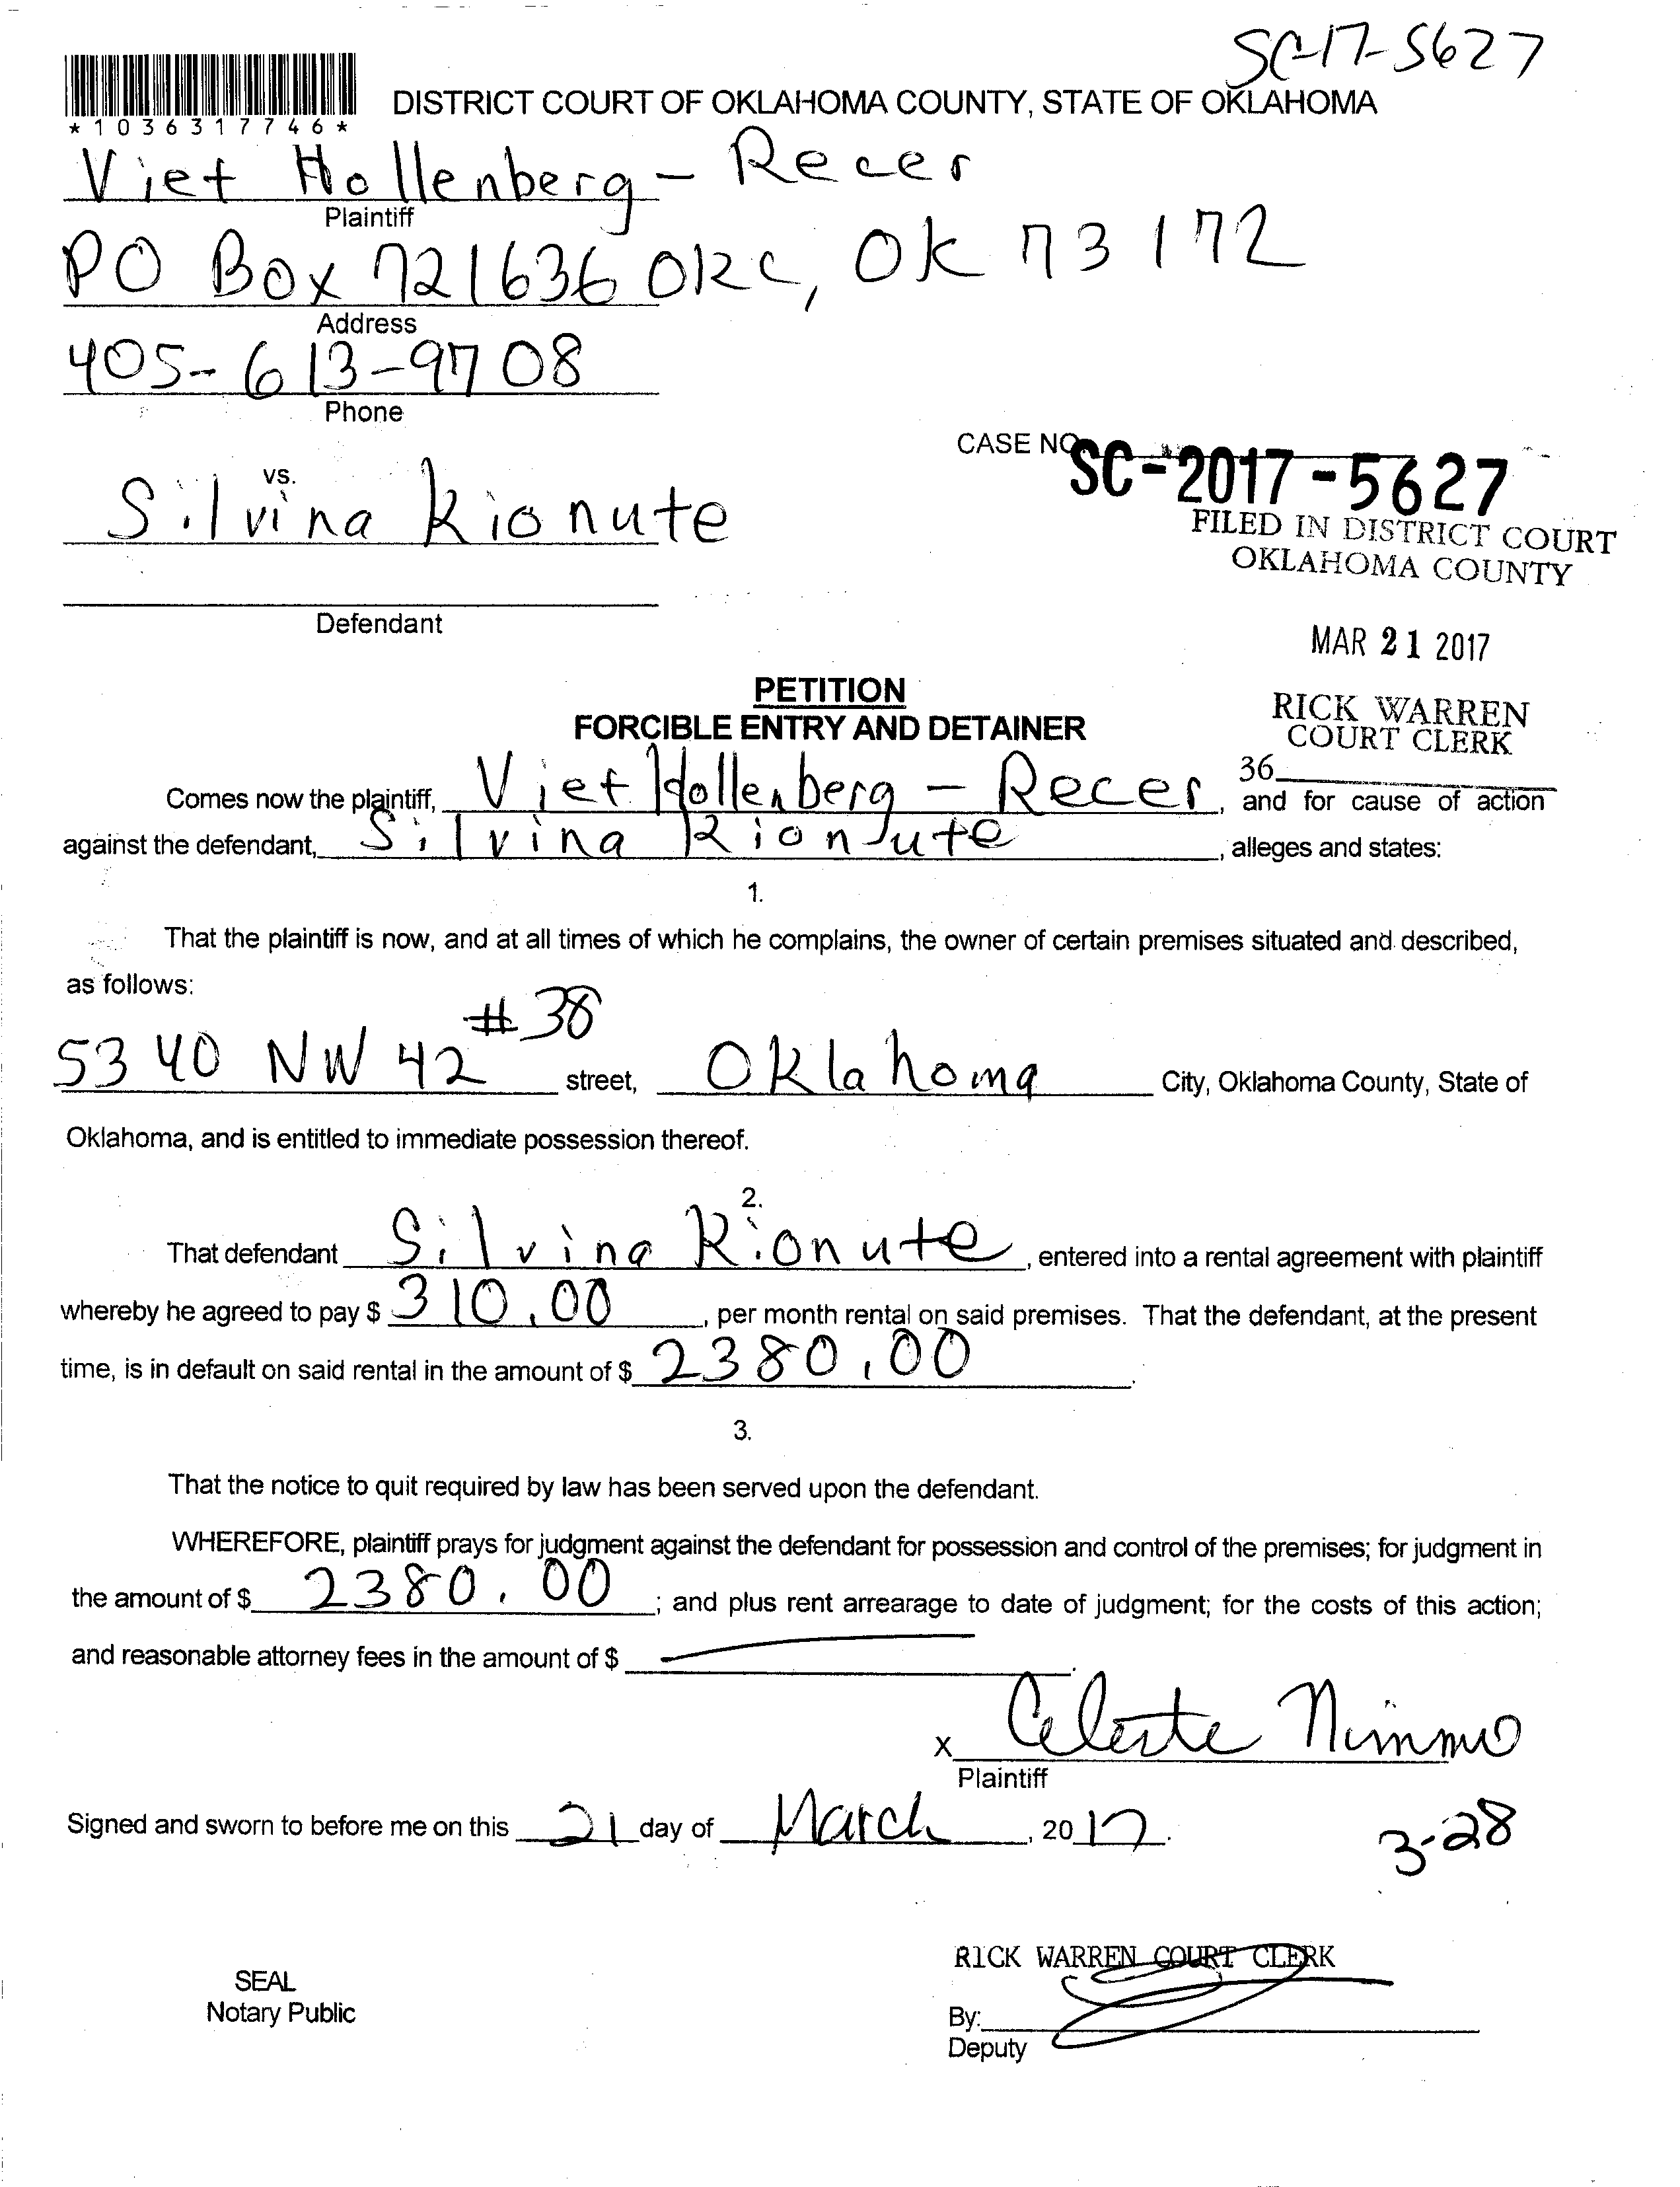 SC-17-5627
*1036317746*
DISTRICT COURT OF OKLAHOMA COUNTY, STATE OF OKLAHOMA
Viet Hollenberg - Recer
Plaintiff
PO Box 721636 OKC, OK 73172
Address
405-613-9708
Phone
CASE NO. SC-2017-5627
vs.
Silvina Kionute
FILED IN DISTRICT COURT
OKLAHOMA COUNTY
Defendant
MAR 21 2017
PETITION
RICK WARREN
FORCIBLE ENTRY AND DETAINER
COURT CLERK
36
Comes now the plaintiff, Viet Hollenberg - Recer, and for cause of action
against the defendant, Silvina Kionute, alleges and states:
1.
That the plaintiff is now, and at all times of which he complains, the owner of certain premises situated and described,
as follows:
5340 NW 42 #38 street, Oklahoma City, Oklahoma County, State of
Oklahoma, and is entitled to immediate possession thereof.
2.
That defendant Silvina Kionute, entered into a rental agreement with plaintiff
whereby he agreed to pay $ 310.00, per month rental on said premises. That the defendant, at the present
time, is in default on said rental in the amount of $ 2380.00.
3.
That the notice to quit required by law has been served upon the defendant.
WHEREFORE, plaintiff prays for judgment against the defendant for possession and control of the premises; for judgment in
the amount of $ 2380.00; and plus rent arrearage to date of judgment; for the costs of this action;
and reasonable attorney fees in the amount of $ .
X Celeste Nimmo
Plaintiff
Signed and sworn to before me on this 21 day of March, 2017.
3-28
RICK WARREN COURT CLERK
SEAL
Notary Public
By:
Deputy